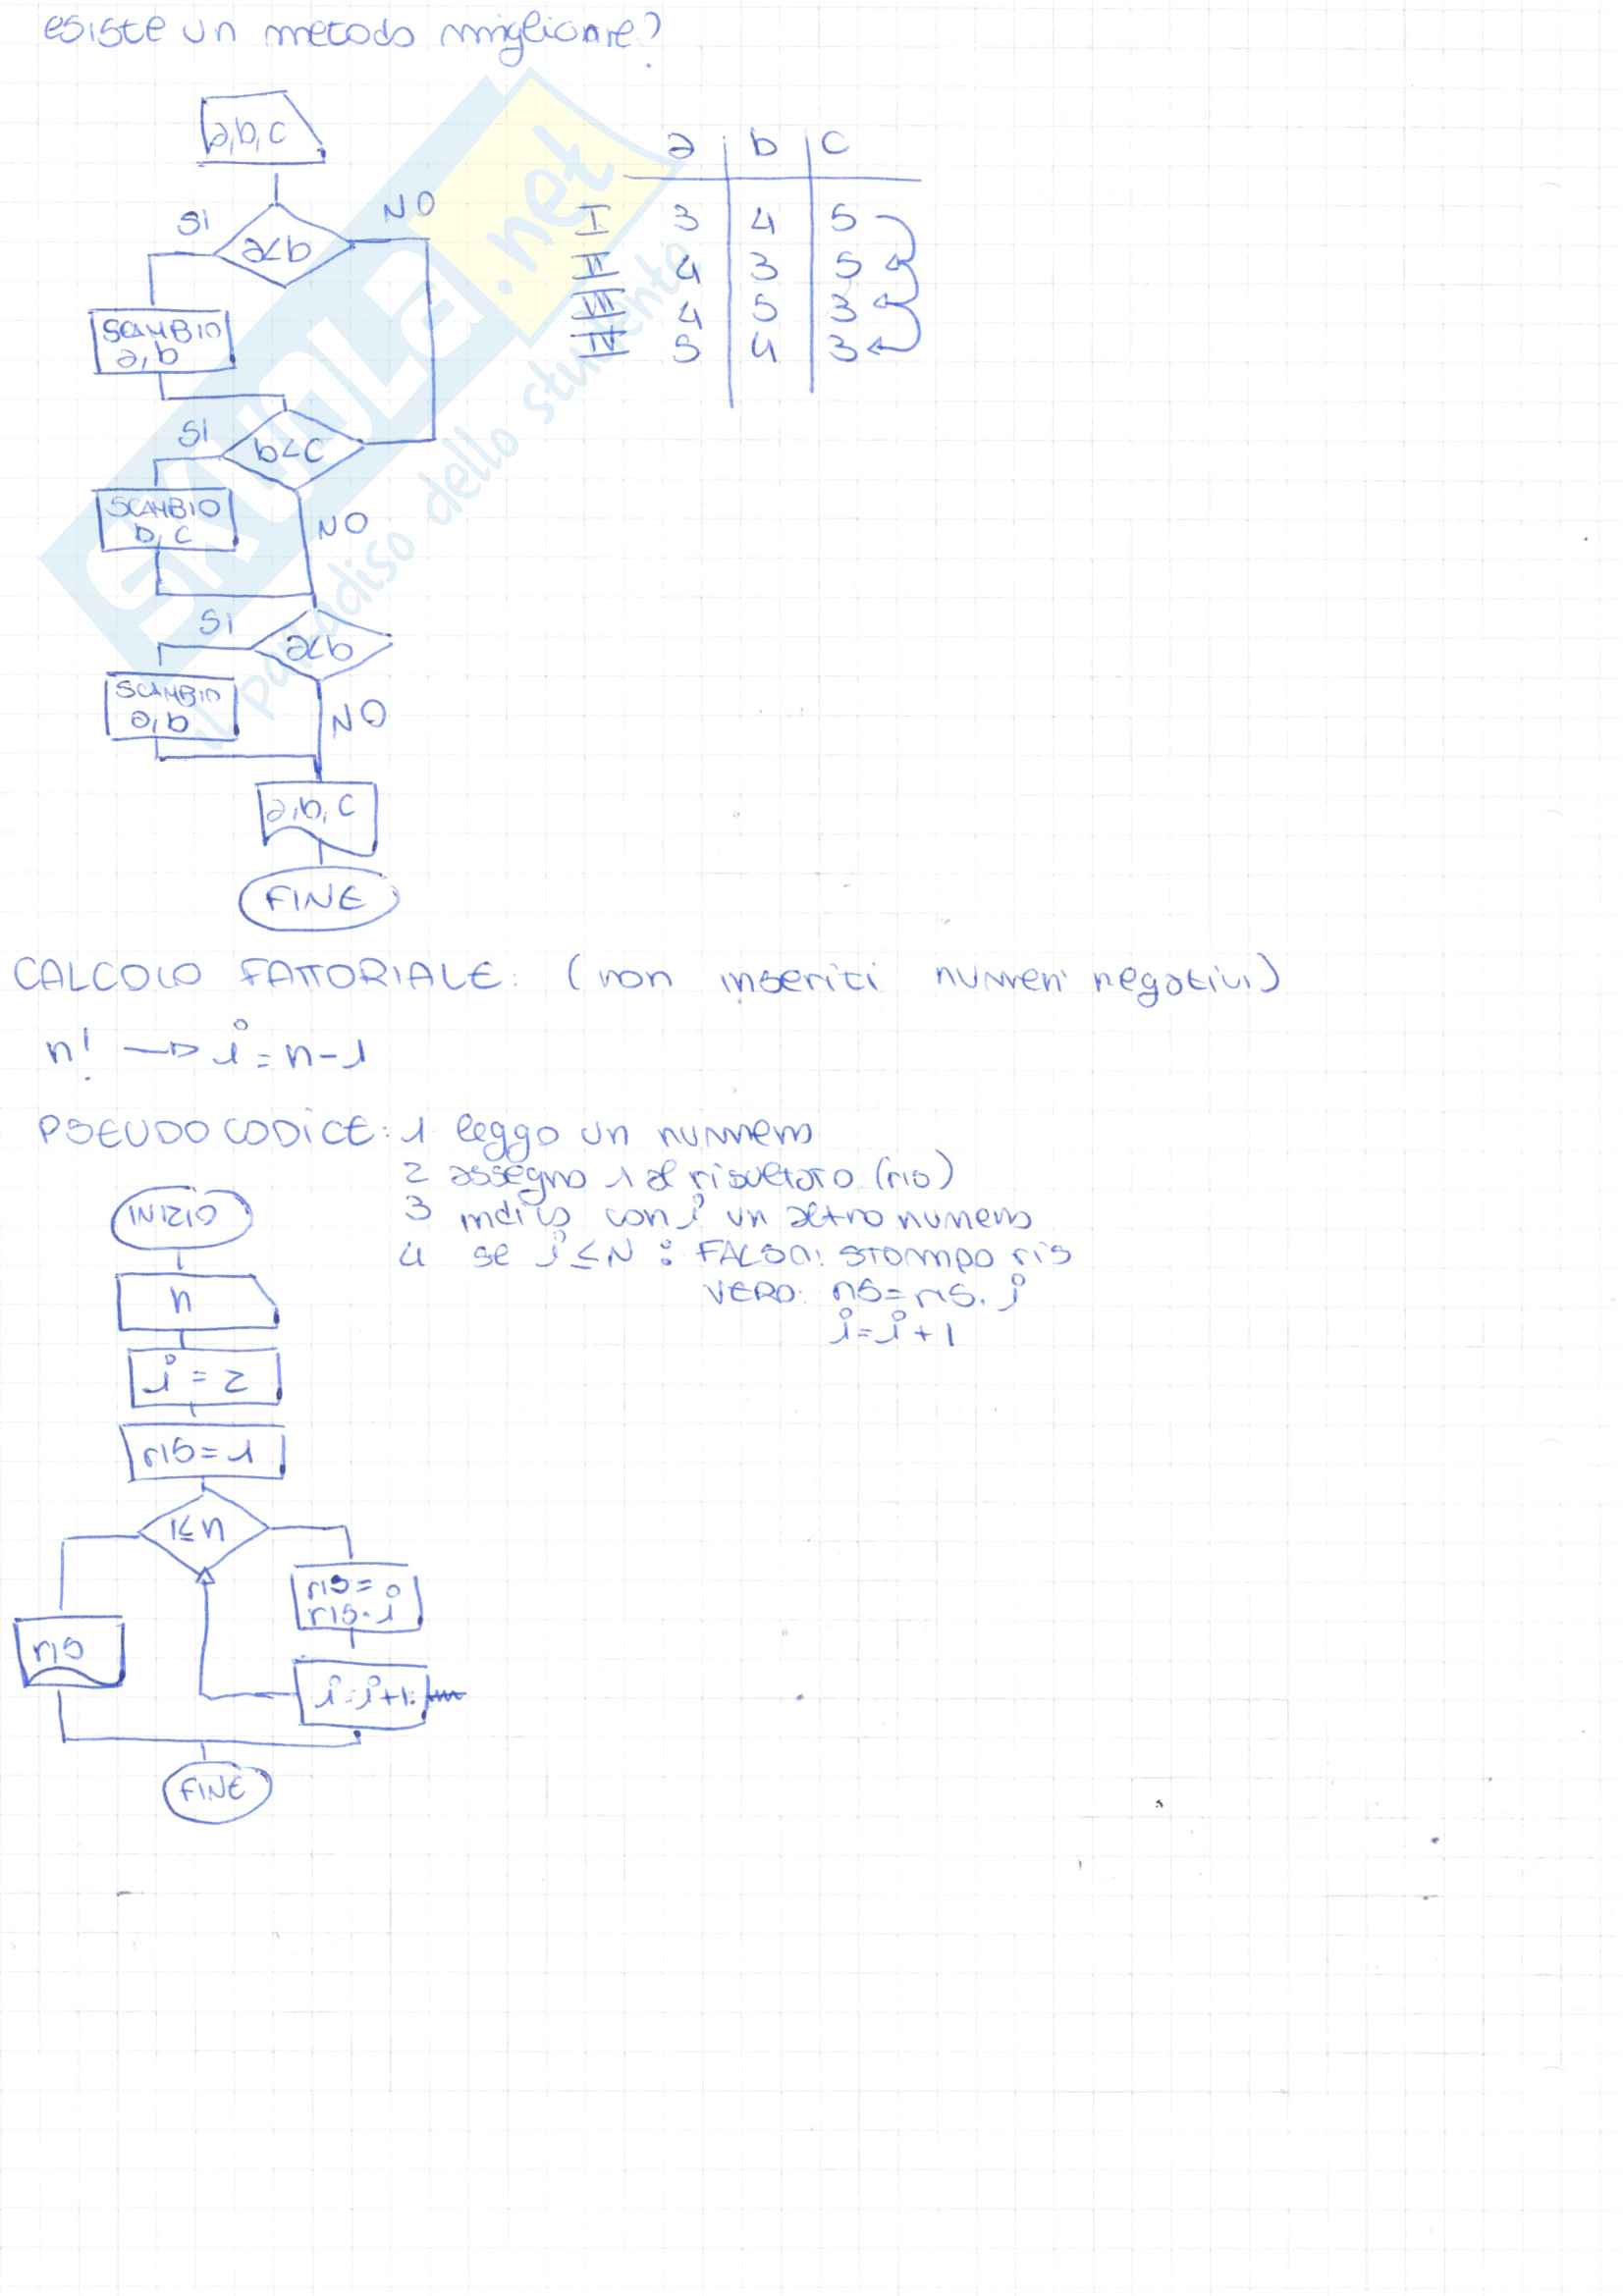 esiste un metodo migliore?
a,b,c
a b c
SI NO
a<b
I 3 4 5
II 4 3 5
III 4 5 3
IV 5 4 3
SCAMBIO
a,b
SI
b<c
SCAMBIO
b,c
NO
SI
a<b
SCAMBIO
a,b
NO
a,b,c
FINE
SKUOLA.net
il paradiso dello studente
CALCOLO FATTORIALE: (non inseriti numeri negativi)
n! → i=n-1
PSEUDOCODICE: 1 leggo un numero
2 assegno 1 al risultato (ris)
3 indico con i un altro numero
4 se i≤N : FALSA: stampo ris
VERO: ris=ris·i
i=i+1
INIZIO
n
i=2
ris=1
i≤n
ris=
ris·i
ris
i=i+1
FINE